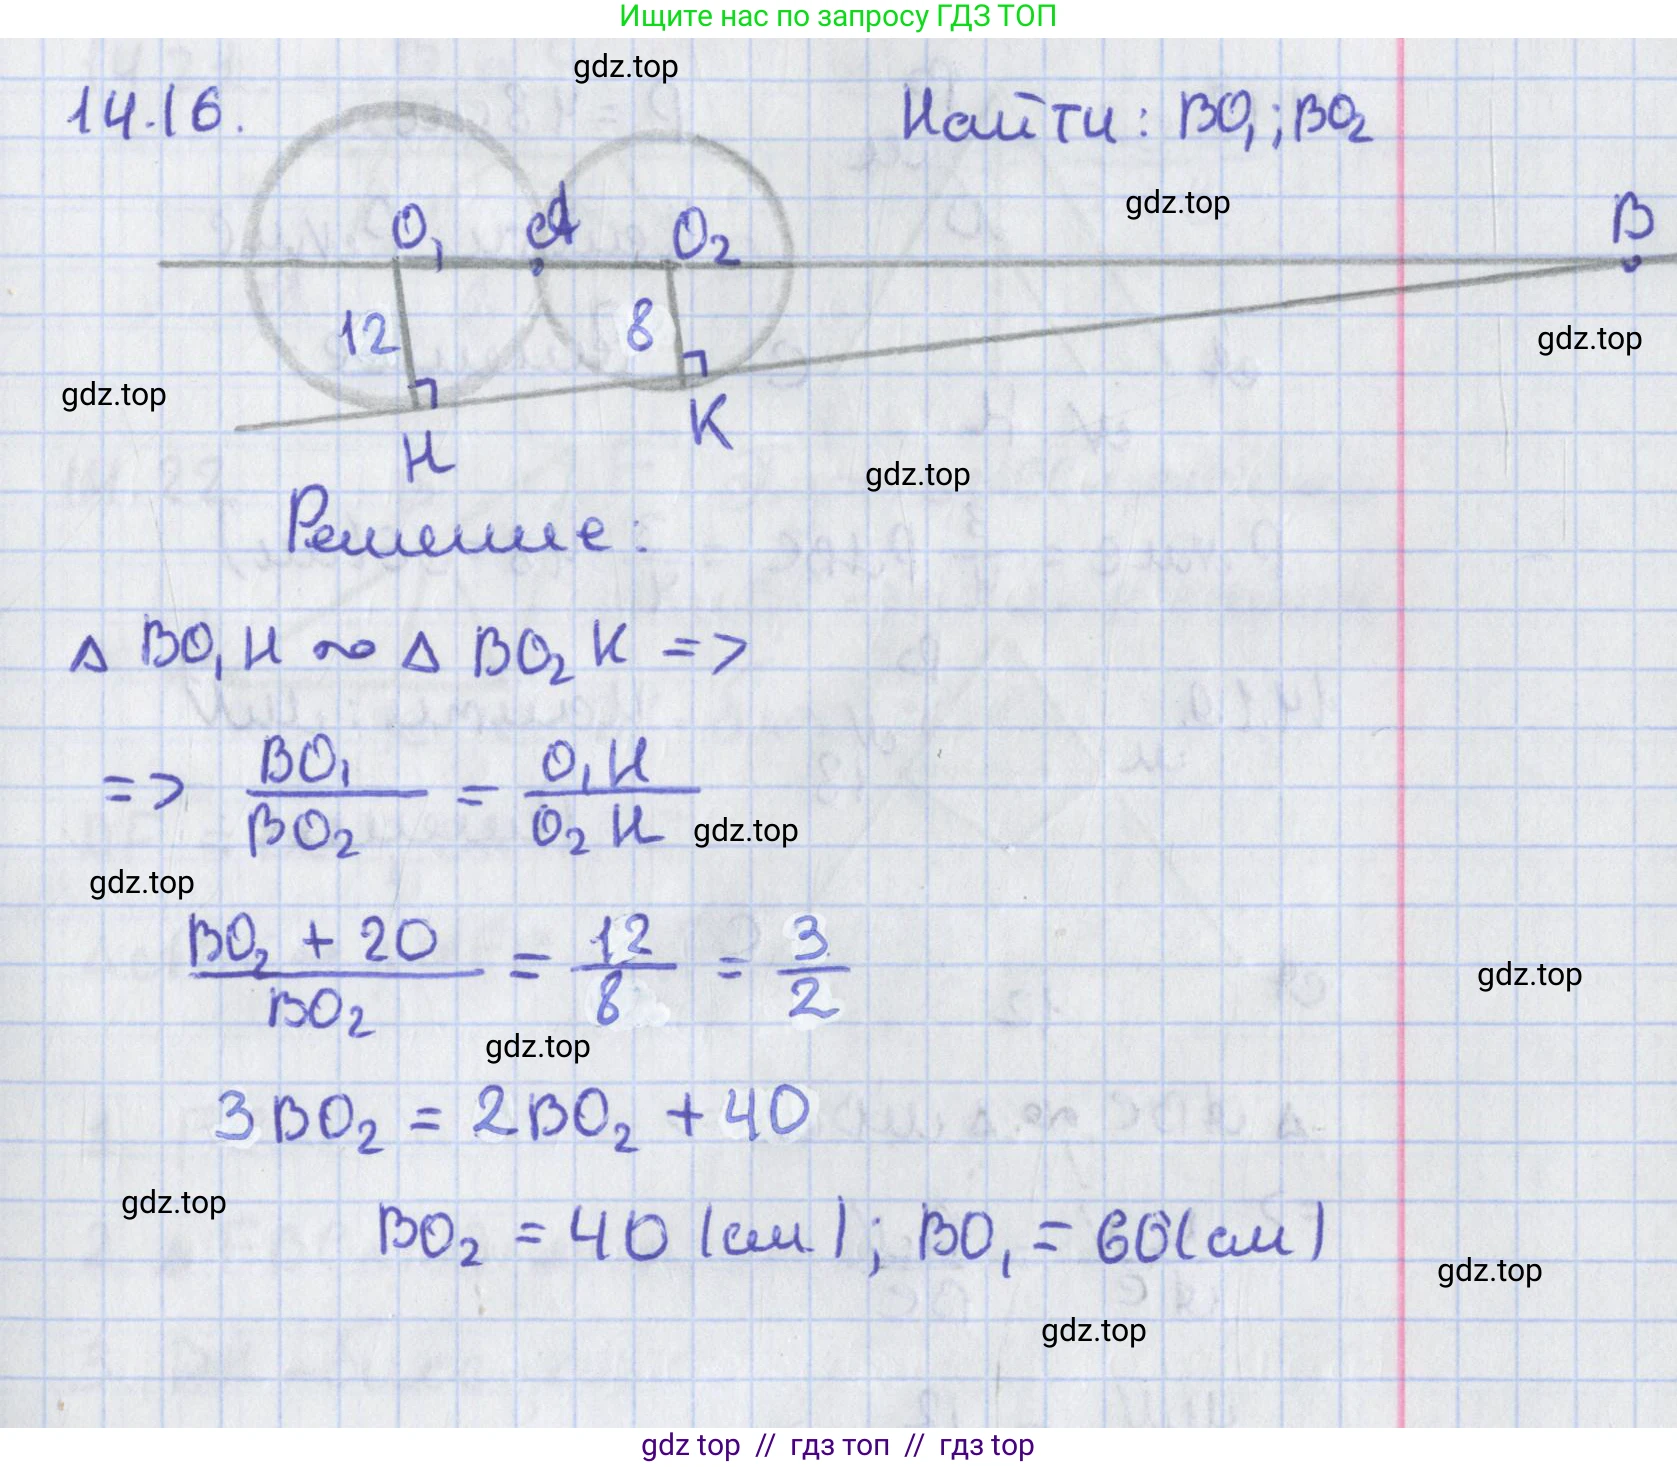 Ищите нас по запросу ГДЗ ТОП
gdz.top
14.16.
Найти: BO₁; BO₂
gdz.top
O₁ A O₂ B
12 8
gdz.top
gdz.top
H K
gdz.top
Решение:
Δ BO₁H ~ Δ BO₂K =>
=> BO₁/BO₂ = O₁H/O₂H
gdz.top
gdz.top
BO₂ + 20/BO₂ = 12/8 = 3/2
gdz.top
gdz.top
3BO₂ = 2BO₂ + 40
gdz.top
BO₂ = 40 (см); BO₁ = 60 (см)
gdz.top
gdz.top
gdz top // гдз топ // gdz top